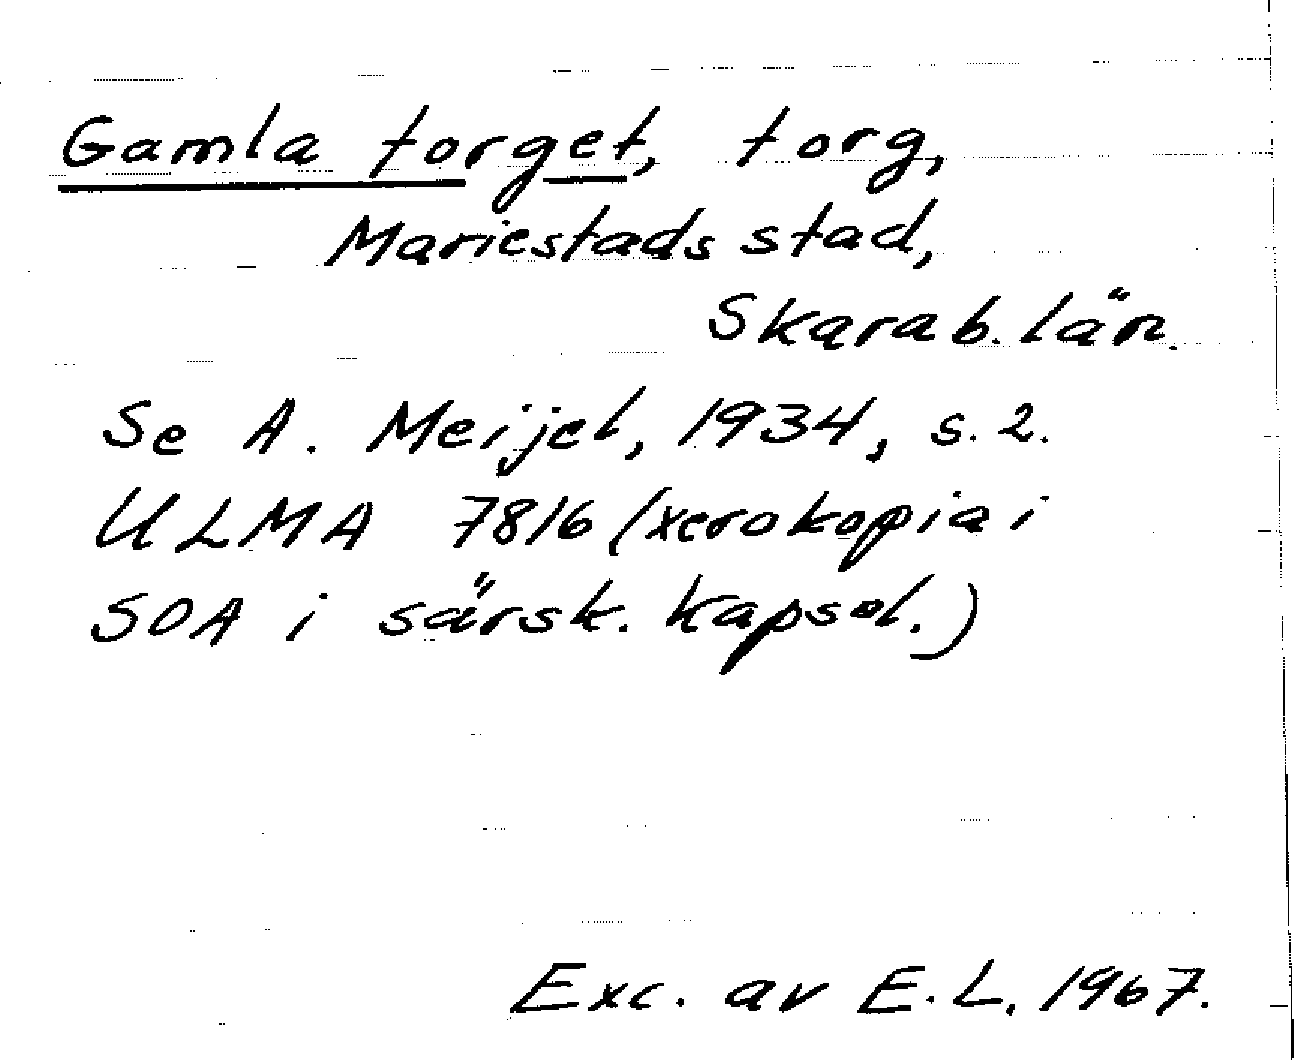 Gamla torget, torg,
Mariestads stad,
Skarab. län.
Se A. Meijel, 1934, s. 2.
ULMA 7816 (xerokopia i
SOA i särsk. kapsel.)
Exc. av E.L. 1967.